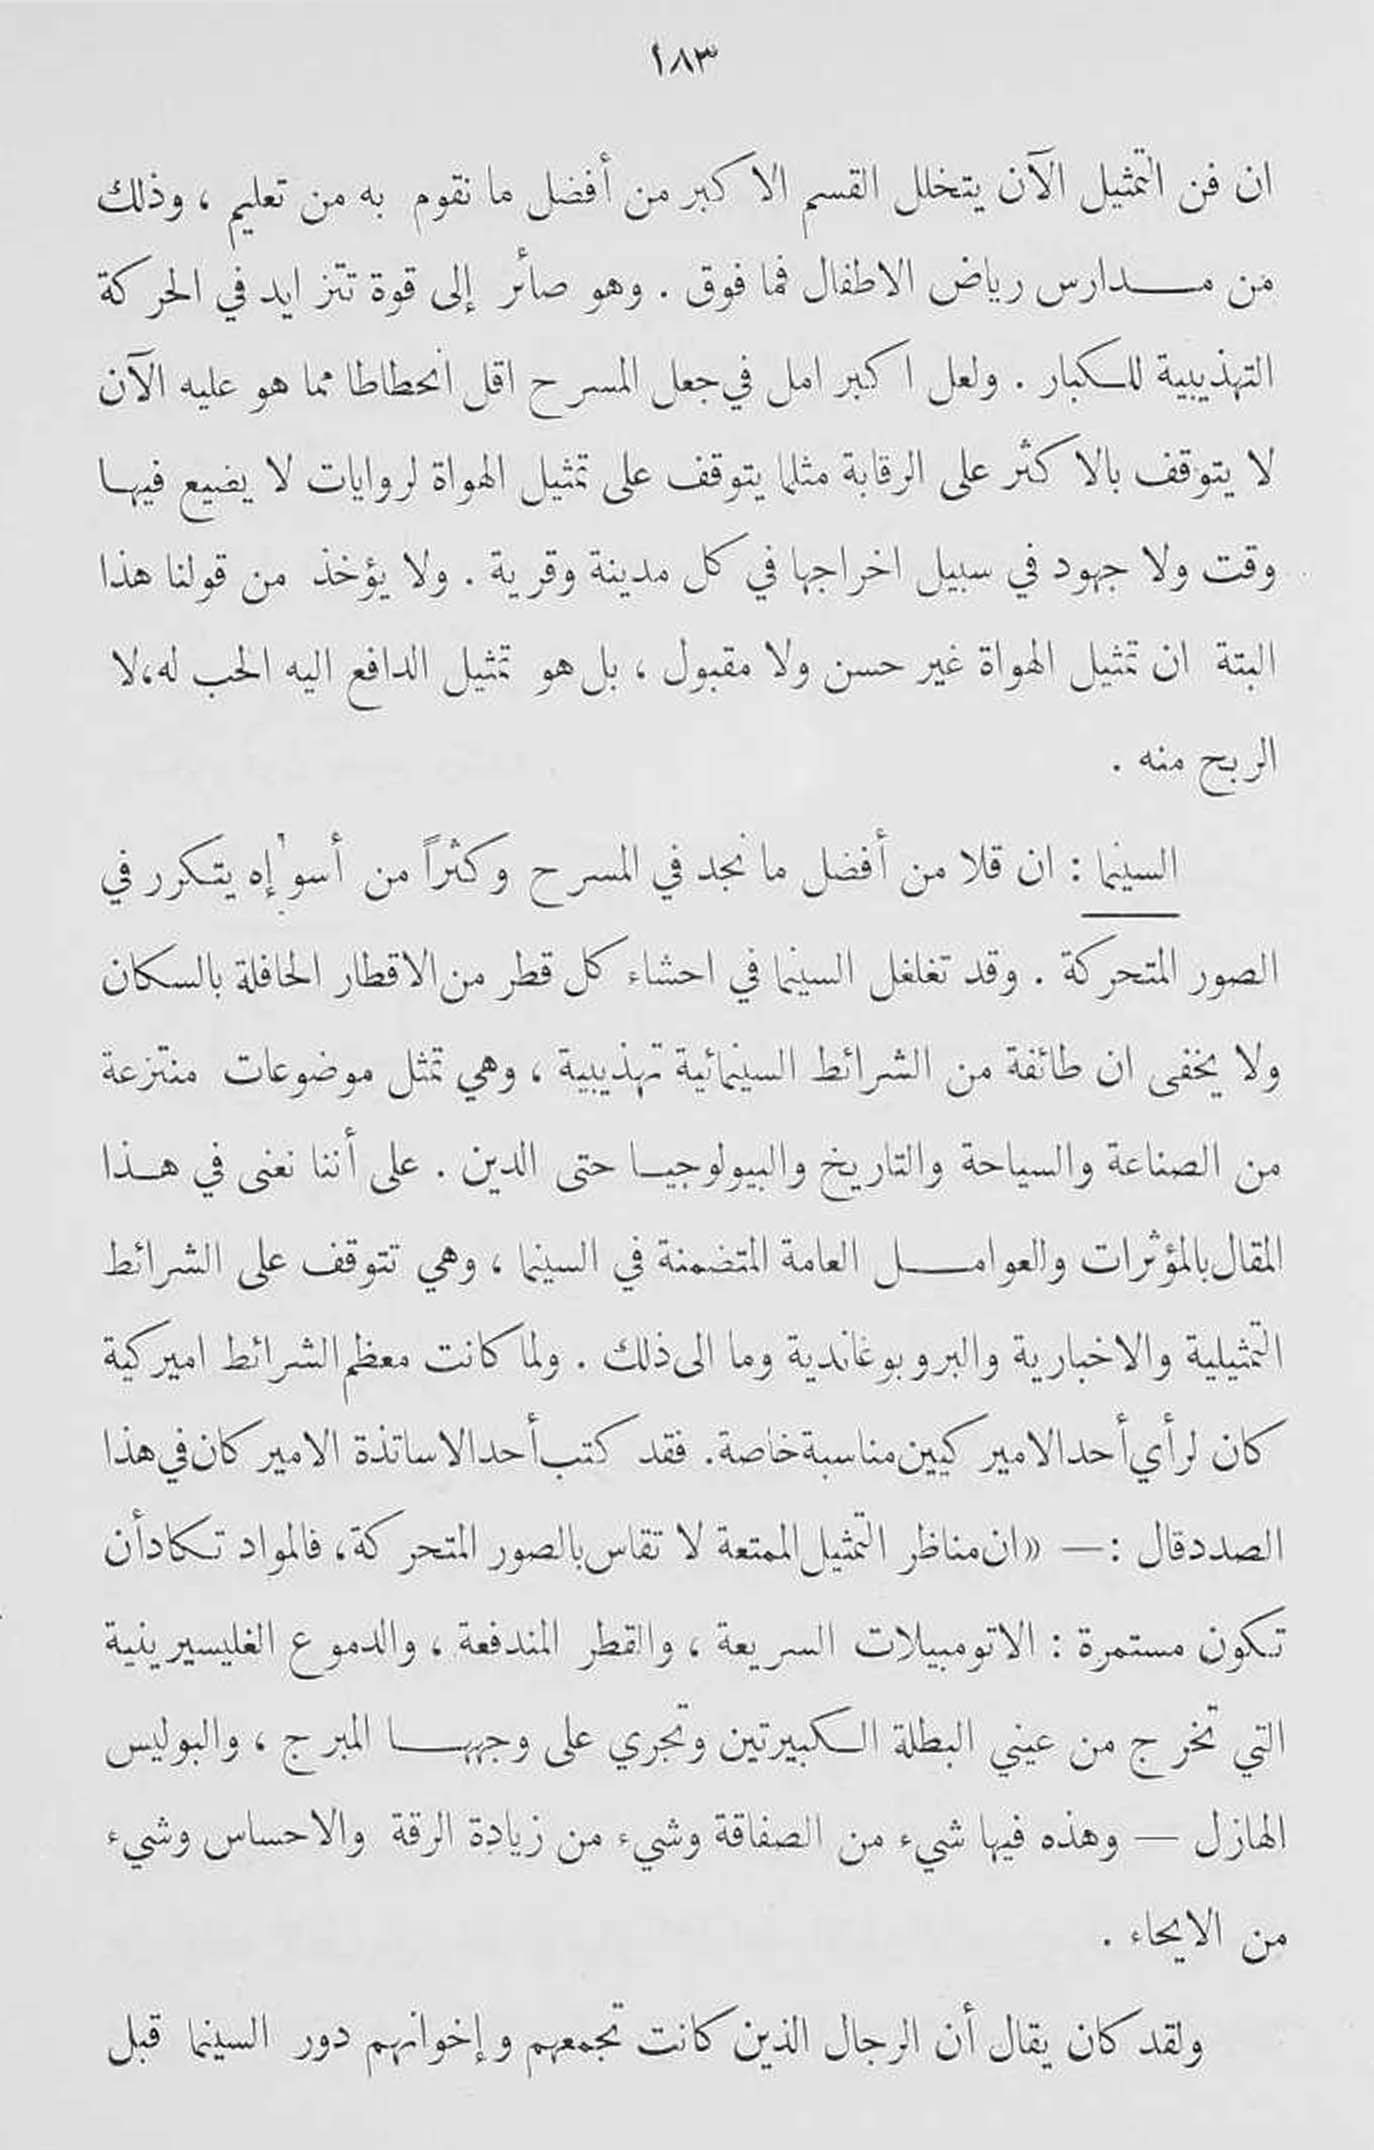 ١٨٣
ان فن التمثيل الآن يتخلل القسم الاكبر من أفضل ما نقوم به من تعليم ، وذلك
من مدارس رياض الاطفال فما فوق . وهو صائر إلى قوة تتزايد في الحركة
التهذيبية للكبار . ولعل اكبر امل في جعل المسرح اقل انحطاطا مما هو عليه الآن
لا يتوقف بالاكثر على الرقابة مثلما يتوقف على تمثيل الهواة لروايات لا يضيع فيها
وقت ولا جهود في سبيل اخراجها في كل مدينة وقرية . ولا يؤخذ من قولنا هذا
البتة ان تمثيل الهواة غير حسن ولا مقبول ، بل هو تمثيل الدافع اليه الحب له، لا
الربح منه .
السينما : ان قلا من أفضل ما نجد في المسرح وكثراً من أسوإه يتكرر في
الصور المتحركة . وقد تغلغل السينما في احشاء كل قطر من الاقطار الحافلة بالسكان
ولا يخفى ان طائفة من الشرائط السينمائية تهذيبية ، وهي تمثل موضوعات منتزعة
من الصناعة والسياحة والتاريخ والبيولوجيا حتى الدين . على أننا نعنى في هذا
المقال بالمؤثرات والعوامل العامة المتضمنة في السينما ، وهي تتوقف على الشرائط
التمثيلية والاخبارية والبروبوغاندية وما الى ذلك . ولما كانت معظم الشرائط اميركية
كان لرأي أحد الاميركيين مناسبة خاصة. فقد كتب أحد الاساتذة الاميركان في هذا
الصدد قال :— «ان مناظر التمثيل الممتعة لا تقاس بالصور المتحركة، فالمواد تكاد أن
تكون مستمرة : الاتومبيلات السريعة ، والقطر المندفعة ، والدموع الغليسيرينية
التي تخرج من عيني البطلة الكبيرتين وتجري على وجهها المبرج ، والبوليس
الهازل — وهذه فيها شيء من الصفاقة وشيء من زيادة الرقة والاحساس وشيء
من الايحاء .
ولقد كان يقال أن الرجال الذين كانت تجمعهم وإخوانهم دور السينما قبل